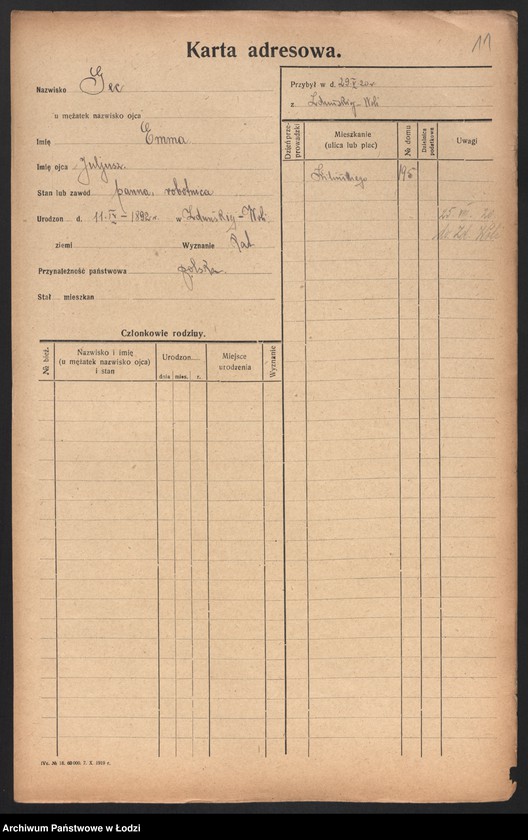 11
Karta adresowa.
Nazwisko Gec
u mężatek nazwisko ojca
Imię Emma
Imię ojca Juljusz.
Stan lub zawód panna, robotnica
Urodzon d. 11-IX-1892 r. w Zduńskiej-Woli
ziemi Wyznanie
Przynależność państwowa polska
Stał. mieszkan
Przybył w d. 29 V 20 r.
z Zduńskiej-Woli
Dzień przeprowadzki
Mieszkanie (ulica lub plac)
№ domu
Dzielnica podatkowa
Uwagi
Kilińskiego 195
25 VII. 20
do Zd. Woli
Członkowie rodziny.
№ bież.
Nazwisko i imię (u mężatek nazwisko ojca) i stan
Urodzon
dnia mies. r.
Miejsce urodzenia
Wyznanie
Archiwum Państwowe w Łodzi